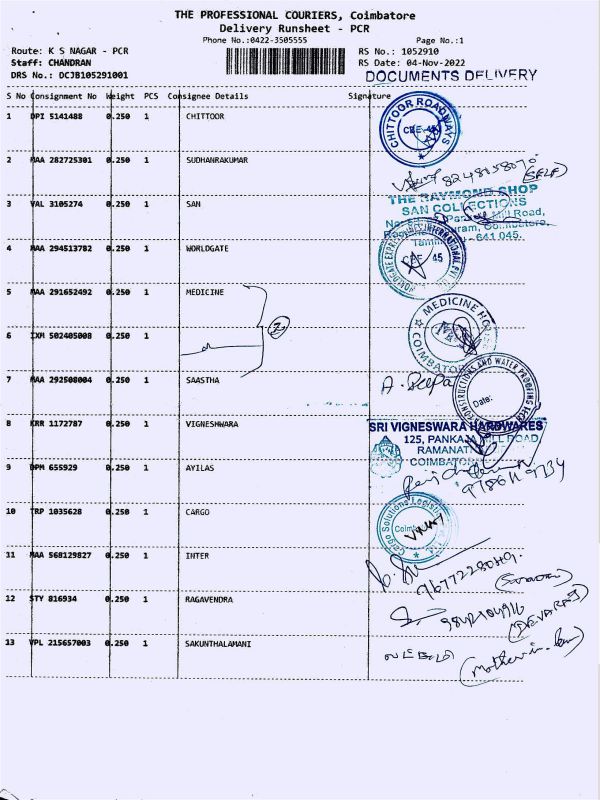 THE PROFESSIONAL COURIERS, Coimbatore
Delivery Runsheet - PCR
Phone No.:0422-3505555
Page No.:1
Route: K S NAGAR - PCR
RS No.: 1052910
Staff: CHANDRAN
RS Date: 04-Nov-2022
DRS No.: DCJB105291001
DOCUMENTS DELIVERY
S No Consignment No Weight PCS Consignee Details Signature
1 DPI 5141488 0.250 1 CHITTOOR
CHITTOOR ROADWAYS
CBE-45
2 MAA 282725301 0.250 1 SUDHANRAKUMAR
8248158070
(SELF)
3 VAL 3105274 0.250 1 SAN
THE RAYMOND SHOP
SAN COLLECTIONS
Mill Road,
Coimbatore,
641 045.
4 MAA 294513782 0.250 1 WORLDGATE
WORLDGATE EXPRESS INTERNATIONAL PVT
CBE 45
5 MAA 291652492 0.250 1 MEDICINE
2
MEDICINE
COIMBATORE
6 IXM 502405008 0.250 1
7 MAA 292508004 0.250 1 SAASTHA
A. Deepa
CONSTRUCTIONS AND WATER PROOFING
Date:
8 KRR 1172787 0.250 1 VIGNESHWARA
SRI VIGNESWARA HARDWARES
125, PANKAJA MILL ROAD
RAMANATHAPURAM
COIMBATORE
9 BPM 655929 0.250 1 AYILAS
10 TRP 1035628 0.250 1 CARGO
Cargo Solutions Logistics
VINAY
11 MAA 568129827 0.250 1 INTER
12 STY 816934 0.250 1 RAGAVENDRA
(DEVARAJ)
13 VPL 215657003 0.250 1 SAKUNTHALAMANI
(Mother in law)